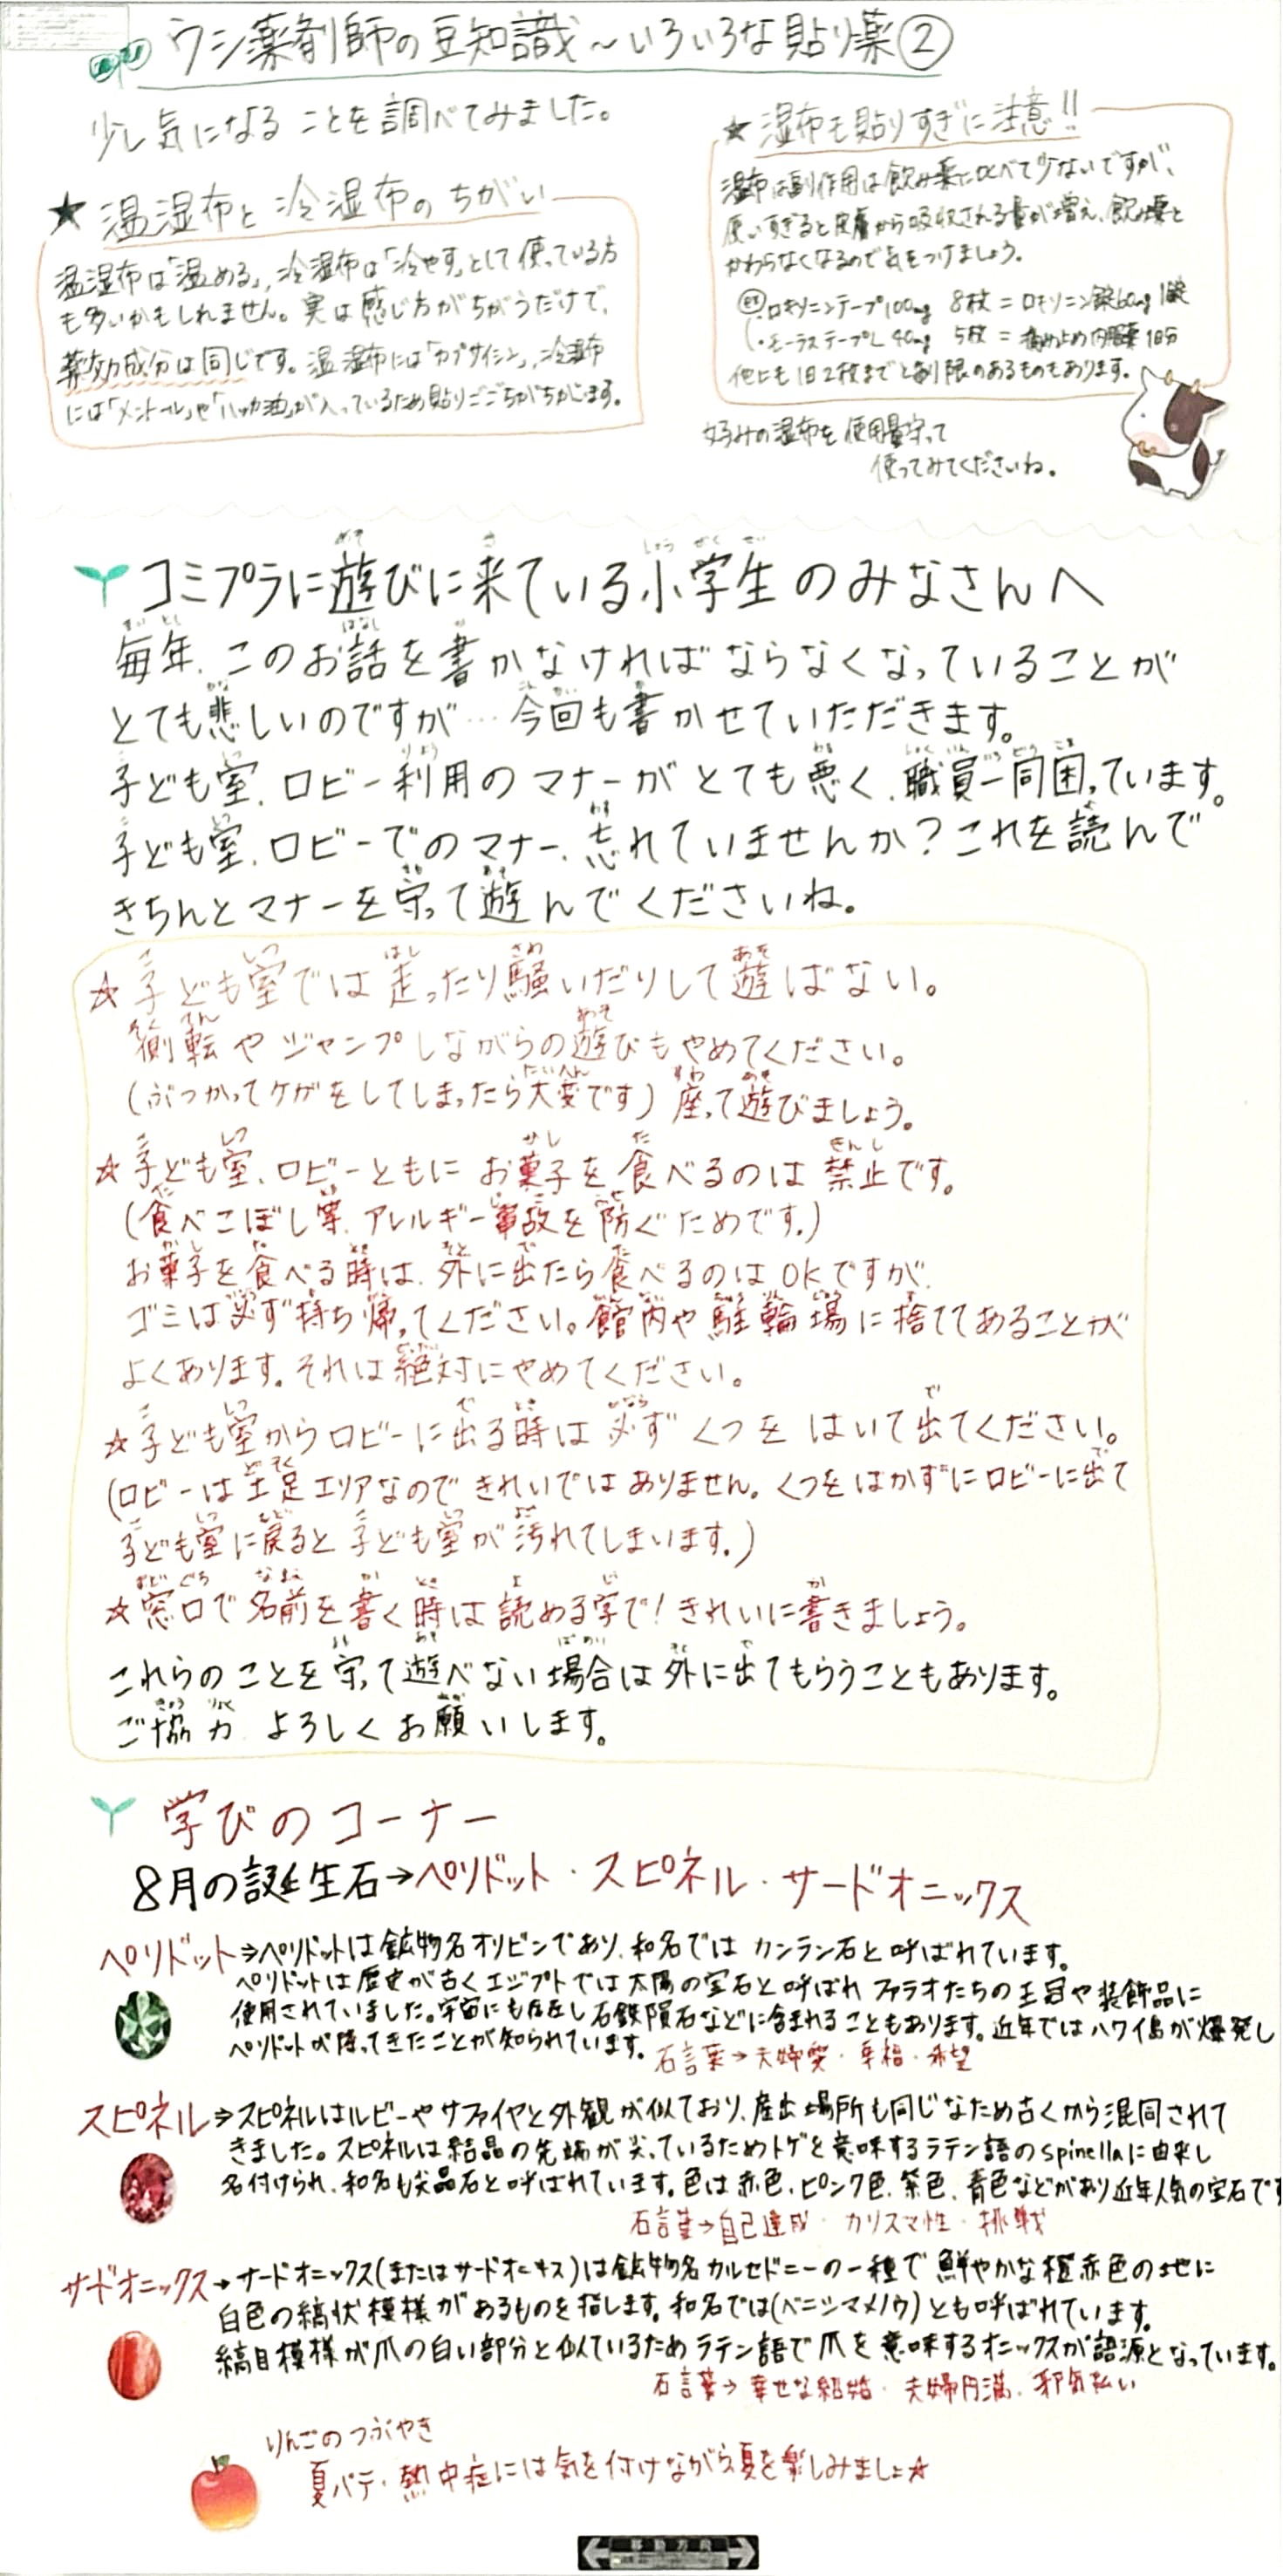 ウシ薬剤師の豆知識～いろいろな貼り薬②
少し気になることを調べてみました。
★温湿布と冷湿布のちがい
温湿布は「温める」、冷湿布は「冷やす」として使っている方
も多いかもしれません。実は感じ方がちがうだけで、
薬効成分は同じです。温湿布には「カプサイシン」、冷湿布
には「メントール」や「ハッカ油」が入っているため貼りごこちがちがいます。
★湿布も貼りすぎに注意!!
湿布は副作用は飲み薬に比べて少ないですが、
使いすぎると皮膚から吸収される量が増え、飲み薬と
かわらなくなるので気をつけましょう。
例・ロキソニンテープ100mg 8枚=ロキソニン錠60mg 1錠
・モーラステープL 40mg 5枚=痛み止め内服薬1日分
他にも1日2枚までと制限のあるものもあります。
好みの湿布を使用量守って
使ってみてくださいね。
コミプラに遊びに来ている小学生のみなさんへ
毎年、このお話を書かなければならなくなっていることが
とても悲しいのですが…今回も書かせていただきます。
子ども室、ロビー利用のマナーがとても悪く、職員一同困っています。
子ども室、ロビーでのマナー、忘れていませんか?これを読んで
きちんとマナーを守って遊んでくださいね。
☆子ども室では走ったり騒いだりして遊ばない。
側転やジャンプしながらの遊びもやめてください。
(ぶつかってケガをしてしまったら大変です)座って遊びましょう。
☆子ども室、ロビーともにお菓子を食べるのは禁止です。
(食べこぼし等、アレルギー事故を防ぐためです。)
お菓子を食べる時は、外に出たら食べるのはOKですが、
ゴミは必ず持ち帰ってください。館内や駐輪場に捨ててあることが
よくあります。それは絶対にやめてください。
☆子ども室からロビーに出る時は必ずくつをはいて出てください。
(ロビーは土足エリアなのできれいではありません。くつをはかずにロビーに出て
子ども室に戻ると子ども室が汚れてしまいます。)
☆窓口で名前を書く時は読める字で!きれいに書きましょう。
これらのことを守って遊べない場合は外に出てもらうこともあります。
ご協力、よろしくお願いします。
学びのコーナー
8月の誕生石→ペリドット・スピネル・サードオニックス
ペリドット⇒ペリドットは鉱物名オリビンであり、和名ではカンラン石と呼ばれています。
ペリドットは歴史が古くエジプトでは太陽の宝石と呼ばれファラオたちの王冠や装飾品に
使用されていました。宇宙にも存在し石鉄隕石などに含まれることもあります。近年ではハワイ島が爆発し
ペリドットが降ってきたことが知られています。
石言葉→夫婦愛・幸福・希望
スピネル⇒スピネルはルビーやサファイヤと外観が似ており、産出場所も同じなため古くから混同されて
きました。スピネルは結晶の先端が尖っているためトゲを意味するラテン語のspinellaに由来し
名付けられ、和名も尖晶石と呼ばれています。色は赤色、ピンク色、紫色、青色などがあり近年人気の宝石です
石言葉→自己達成・カリスマ性・挑戦
サードオニックス→サードオニックス(またはサードオニキス)は鉱物名カルセドニーの一種で鮮やかな橙赤色の地に
白色の縞状模様があるものを指します。和名では(ベニシマメノウ)とも呼ばれています。
縞目模様が爪の白い部分と似ているためラテン語で爪を意味するオニックスが語源となっています。
石言葉→幸せな結婚・夫婦円満・邪気払い
りんごのつぶやき
夏バテ・熱中症には気を付けながら夏を楽しみましょ☆
移動方向